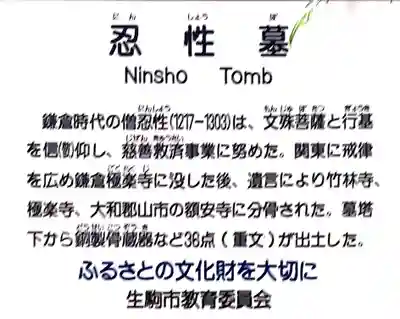 忍性墓
Ninsho Tomb
鎌倉時代の僧忍性(1217-1303)は、文殊菩薩と行基
を信(敬)仰し、慈善救済事業に努めた。関東に戒律
を広め鎌倉極楽寺に没した後、遺言により竹林寺、
極楽寺、大和郡山市の額安寺に分骨された。墓塔
下から銅製骨蔵器など36点(重文)が出土した。
ふるさとの文化財を大切に
生駒市教育委員会